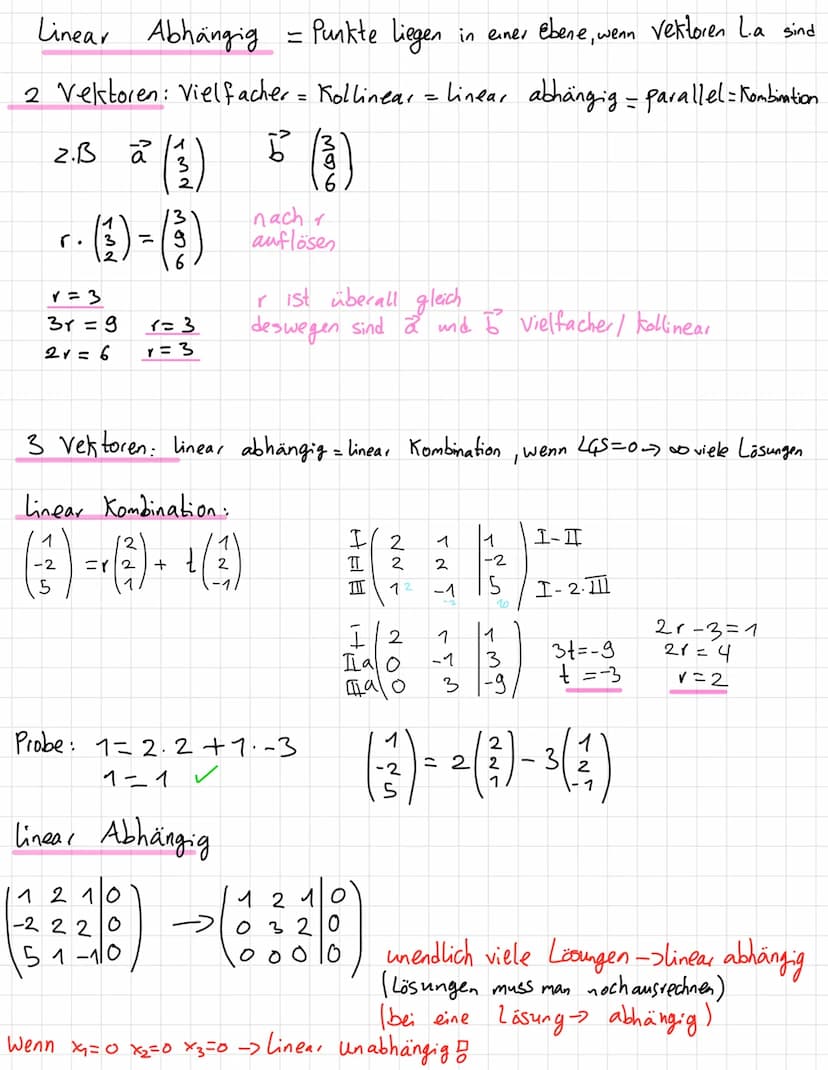 Linear Abhängig = Punkte liegen in einer Ebene, wenn Vektoren L.a sind
2 Vektoren: Vielfacher = Kollinear = linear abhängig = parallel = Kombination
z.B a⃗ (1 3 2) b⃗ (3 9 6)
r · (1 3 2) = (3 9 6) nach r auflösen
r = 3
3r = 9 r = 3
2r = 6 r = 3
r ist überall gleich
deswegen sind a⃗ und b⃗ Vielfacher / kollinear
3 Vektoren: linear abhängig = linear Kombination, wenn LGS=0 → ∞ viele Lösungen
Linear Kombination:
(1 -2 5) = r (2 2 1) + t (1 2 -1)
I ( 2 1 | 1 ) I - II
II ( 2 2 | -2 )
III ( 1 2 -1 -2 | 5 10 ) I - 2·III
I ( 2 1 | 1 )
IIa ( 0 -1 | 3 )
IIIa ( 0 3 | -9 )
3t = -9
t = -3
2r - 3 = 1
2r = 4
r = 2
Probe: 1 = 2·2 + 1·-3
1 = 1 ✓
(1 -2 5) = 2 (2 2 1) - 3 (1 2 -1)
linear Abhängig
( 1 2 1 | 0 ) → ( 1 2 1 | 0 )
( -2 2 2 | 0 ) ( 0 3 2 | 0 )
( 5 1 -1 | 0 ) ( 0 0 0 | 0 )
unendlich viele Lösungen → linear abhängig
(Lösungen muss man noch ausrechnen)
(bei eine Lösung → abhängig)
Wenn x₁=0 x₂=0 x₃=0 → Linear unabhängig!